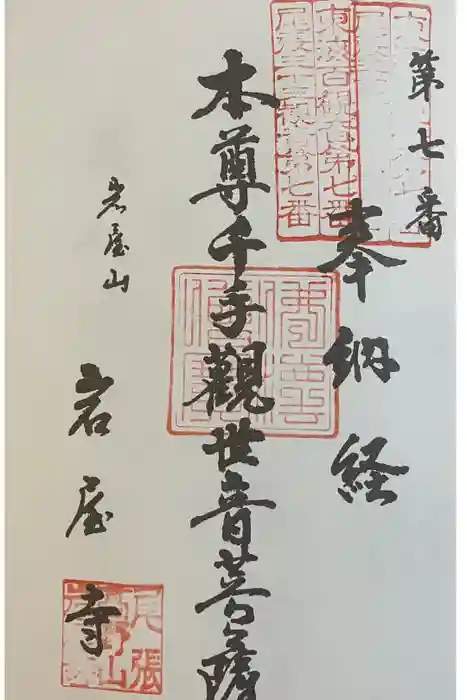 第七番
奉納経
本尊千手觀世音菩薩
岩屋山
岩屋寺
東海百観音第七番
尾張三十三観音第七番
尾張